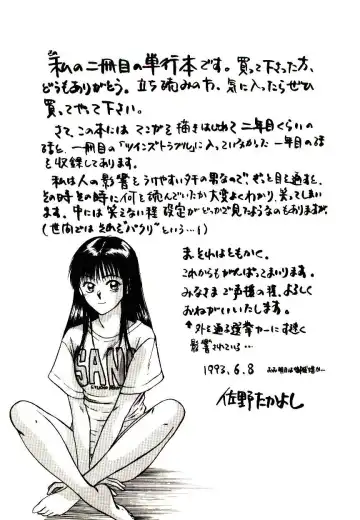 この
私の二冊目の単行本です。買って下さった方、
どうもありがとう。立ち読みの方、気に入ったらぜひ
買ってやって下さい。
さて、この本にはマンガを描きはじめて二年目くらいの
話と、一冊目の「ツインズトラブル」に入っていなかった一年目の話
を収録してあります。
私は人の影響をうけやすいタチの男なので、ざっと目を通すと、
その時その時に何を読んでいたか大変よくわかり、笑ってしまい
ます。中には笑えない程設定がどっかで見たようなのもありますが、
(世間ではそれを"パクリ"という…!)
ま、それはともかく、
これからもがんばってまいります。
みなさまご声援の程、よろしく
おねがいいたします。
*外を通る選挙カーにすぐ
影響されている…
1993.6.8
佐野たかよし
SAND